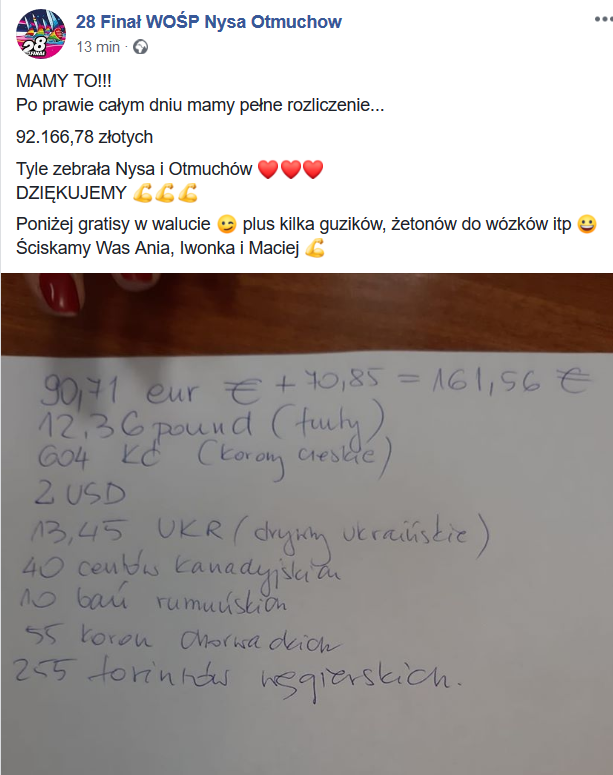 28 Finał WOŚP Nysa Otmuchow
13 min
28
FINAŁ
MAMY TO!!!
Po prawie całym dniu mamy pełne rozliczenie...
92.166,78 złotych
Tyle zebrała Nysa i Otmuchów ❤️❤️❤️
DZIĘKUJEMY 💪💪💪
Poniżej gratisy w walucie 😉 plus kilka guzików, żetonów do wózków itp 😀
Ściskamy Was Ania, Iwonka i Maciej 💪
90,71 eur € + 70,85 = 161,56 €
12,36 pound (funty)
604 KČ (korony czeskie)
2 USD
13,45 UKR (hrywny ukraińskie)
40 centów kanadyjskich
10 bań rumuńskich
55 koron chorwackich
255 forintów węgierskich.